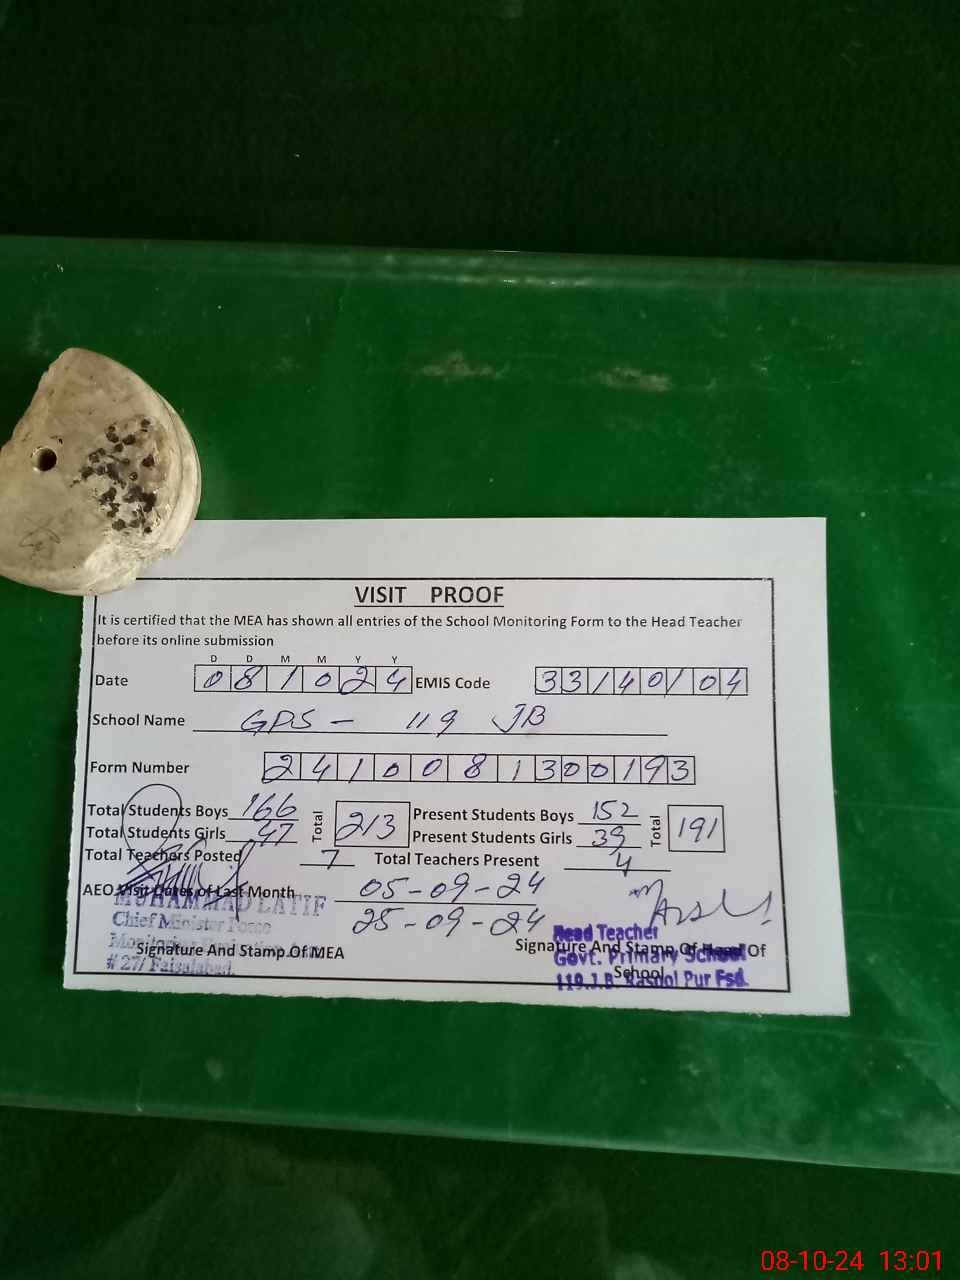 VISIT PROOF
It is certified that the MEA has shown all entries of the School Monitoring Form to the Head Teacher
before its online submission
D D M M Y Y
Date 0 8 1 0 2 4 EMIS Code 3 3 1 4 0 1 0 4
School Name GPS - 119 JB
Form Number 2 4 1 0 0 8 1 3 0 0 1 9 3
Total Students Boys 166 Total 213 Present Students Boys 152 Total 191
Total Students Girls 47 Present Students Girls 39
Total Teachers Posted 7 Total Teachers Present 4
AEO Visit Dates of Last Month 05-09-24
25-09-24
MUHAMMAD LATIF
Chief Minister Force
Monitoring
# 27/ Faisalabad.
Signature And Stamp Of MEA
Signature And Stamp Of Head Of
School
Head Teacher
Govt. Primary School
119.J.B. Rasool Pur Fsd.
08-10-24 13:01